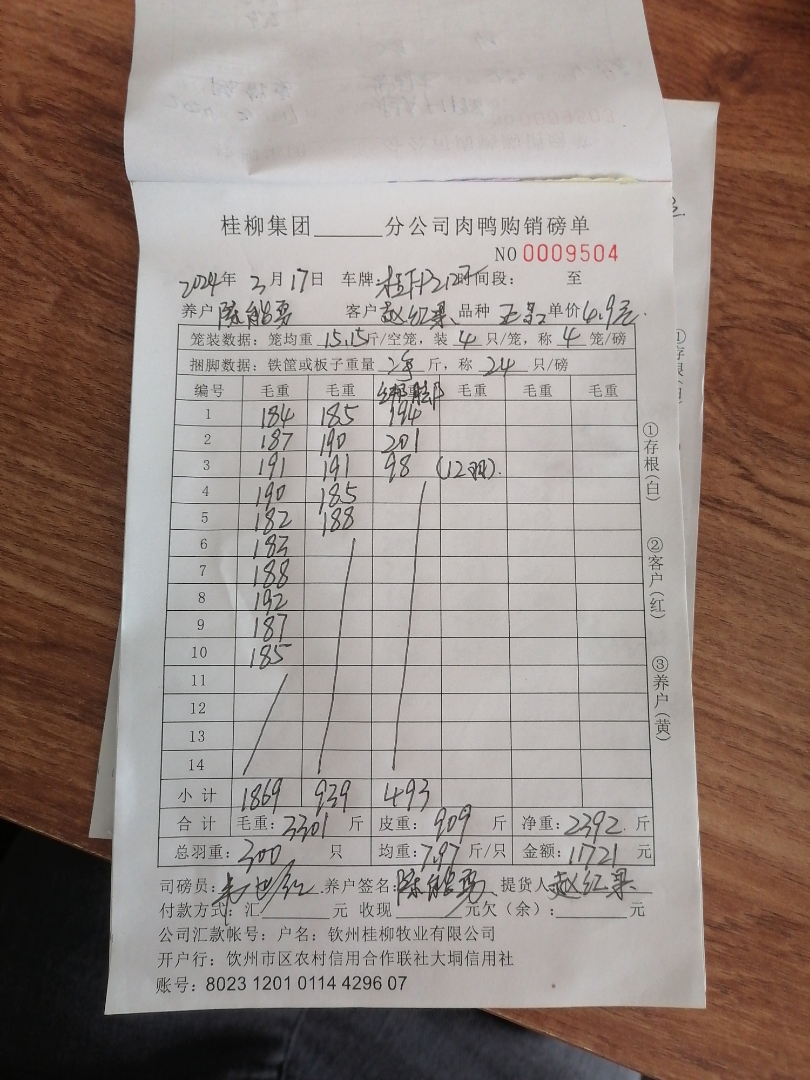 桂柳集团______分公司肉鸭购销磅单
NO 0009504
2024年3月17日 车牌: 时间段: 至
养户 陈能勇 客户 赵红果 品种 单价4.9元
笼装数据: 笼均重 15.15斤/空笼, 装 4 只/笼, 称 4 笼/磅
捆脚数据: 铁筐或板子重量 斤, 称 24 只/磅
编号 毛重 毛重 绑脚 毛重 毛重 毛重
1 184 185 194
2 187 190 201
3 191 191 98 (12羽).
4 190 185
5 182 188
6 183
7 188
8 192
9 187
10 185
11
12
13
14
小计 1869 939 493
合计 毛重: 3301 斤 皮重: 909 斤 净重: 2392 斤
总羽重: 300 只 均重: 7.97 斤/只 金额: 11721 元
司磅员: 养户签名: 陈能勇 提货人 赵红果
付款方式: 汇______元 收现______元欠(余): ______元
公司汇款帐号: 户名: 钦州桂柳牧业有限公司
开户行: 饮州市区农村信用合作联社大垌信用社
账号: 8023 1201 0114 4296 07
①存根(白)
②客户(红)
③养户(黄)